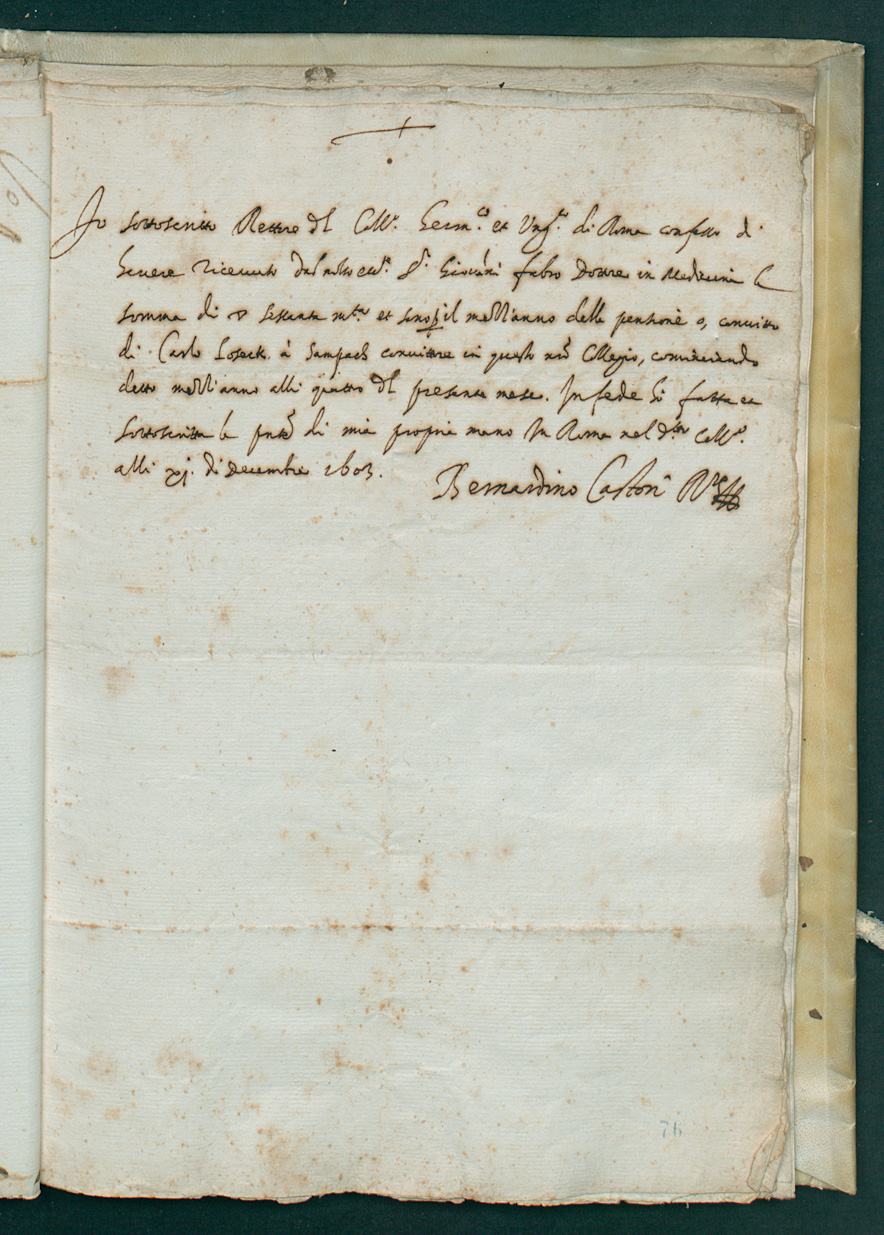 Io sottoscritto Rettore del Coll.º Germ.co et Ung.co di Roma confesso d'
havere ricevuto dal molto ecc.te S.r Giovãni fabro Dottore in Medicina la
somma di ▽ sessanta m.ta et sono p il mezz'anno della pensione o, convitto
di Carlo Loseck à Sampach convittore in questo nrõ Collegio, cominciando
detto mezz'anno alli quattro del presente mese. In fede hò fatta et
sottoscritta la pntẽ di mia propria mano In Roma nel d.to Coll.º
alli xj. di Decembre 1603.
Bernardino Castori R.re
76